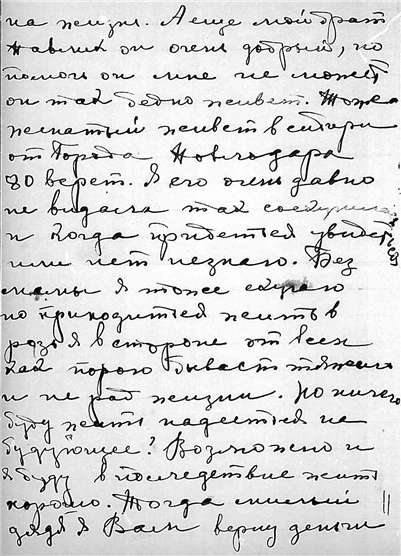 на жизнь. А еще мой брат
Павлик он очень добрый, но
помочь он мне не может
он так бедно живет. Тоже
женатый живет в сибири
от Города
80 верст. Я его очень давно
не видалса так соскучился
и когда придется увидет
ься
или нет незнаю. Без
мамы я тоже скучаю
но приходится жить в
розь я в стороне от всех
как порою бывает тяжело
и не рад жизни. Но ничего
буду жить надеется на
будующее! Возможно и
я буду в последствие жить
хорошо. Тогда милый
дядя я Вам верну деньги